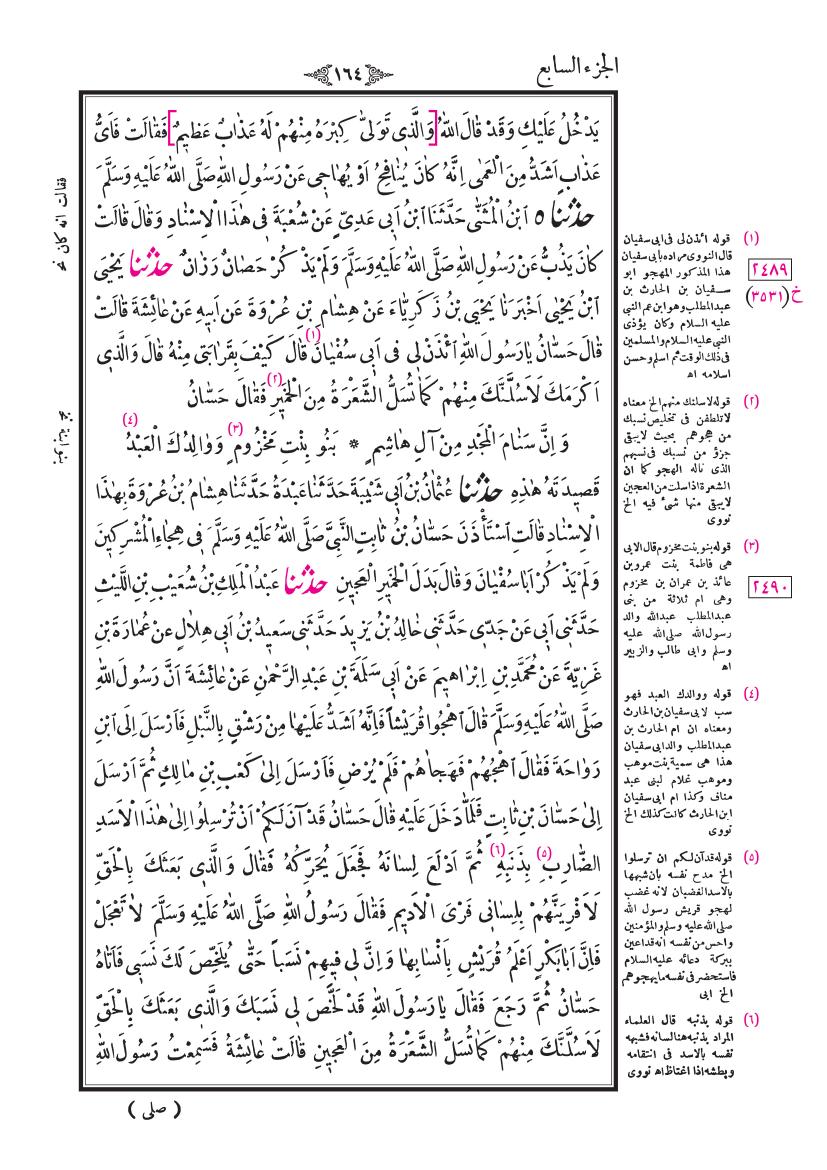 الجزء السابع
١٦٤
يَدْخُلُ عَلَيْكِ وَقَدْ قَالَ اللهُ [وَالَّذِى تَوَلّٰى كِبْرَهُ مِنْهُمْ لَهُ عَذَابٌ عَظِيمٌ] فَقَالَتْ فَأَىُّ
عَذَابٍ اَشَدُّ مِنَ الْعَمٰى اِنَّهُ كَانَ يُنَافِحُ اَوْ يُهَاجِى عَنْ رَسُولِ اللهِ صَلَّى اللهُ عَلَيْهِ وَسَلَّمَ
حَدَّثَنَا ٥ ابْنُ الْمُثَنّٰى حَدَّثَنَا ابْنُ اَبِى عَدِىٍّ عَنْ شُعْبَةَ فِى هٰذَا الْاِسْنَادِ وَقَالَ قَالَتْ
كَانَ يَذُبُّ عَنْ رَسُولِ اللهِ صَلَّى اللهُ عَلَيْهِ وَسَلَّمَ وَلَمْ يَذْكُرْ حَصَانٌ رَزَانٌ حَدَّثَنَا يَحْيَى
ابْنُ يَحْيٰى اَخْبَرَنَا يَحْيَى بْنُ زَكَرِيَّاءَ عَنْ هِشَامِ بْنِ عُرْوَةَ عَنْ اَبِيهِ عَنْ عَائِشَةَ قَالَتْ
قَالَ حَسَّانُ يَا رَسُولَ اللهِ اَئْذَنْ لِى فِى اَبِى سُفْيَانَ (١) قَالَ كَيْفَ بِقَرَابَتِى مِنْهُ قَالَ وَالَّذِى
اَكْرَمَكَ لَاَسُلَّنَّكَ مِنْهُمْ كَمَا تُسَلُّ الشَّعْرَةُ مِنَ الْخَمِيرِ (٢) فَقَالَ حَسَّانُ
وَ اِنَّ سَنَامَ الْمَجْدِ مِنْ آلِ هَاشِمٍ * بَنُو بِنْتِ مَخْزُومٍ (٣) وَوَالِدُكَ الْعَبْدُ (٤)
قَصِيدَتَهُ هٰذِهِ حَدَّثَنَا عُثْمَانُ بْنُ اَبِى شَيْبَةَ حَدَّثَنَا عَبْدَةُ حَدَّثَنَا هِشَامُ بْنُ عُرْوَةَ بِهٰذَا
الْاِسْنَادِ قَالَتِ اسْتَأْذَنَ حَسَّانُ بْنُ ثَابِتٍ النَّبِىَّ صَلَّى اللهُ عَلَيْهِ وَسَلَّمَ فِى هِجَاءِ الْمُشْرِكِينَ
وَلَمْ يَذْكُرْ اَبَا سُفْيَانَ وَقَالَ بَدَلَ الْخَمِيرِ الْعَجِينِ حَدَّثَنَا عَبْدُ الْمَلِكِ بْنُ شُعَيْبِ بْنِ اللَّيْثِ
حَدَّثَنِى اَبِى عَنْ جَدِّى حَدَّثَنِى خَالِدُ بْنُ يَزِيدَ حَدَّثَنِى سَعِيدُ بْنُ اَبِى هِلَالٍ عَنْ عُمَارَةَ بْنِ
غَزِيَّةَ عَنْ مُحَمَّدِ بْنِ اِبْرَاهِيمَ عَنْ اَبِى سَلَمَةَ بْنِ عَبْدِ الرَّحْمٰنِ عَنْ عَائِشَةَ اَنَّ رَسُولَ اللهِ
صَلَّى اللهُ عَلَيْهِ وَسَلَّمَ قَالَ اهْجُوا قُرَيْشاً فَاِنَّهُ اَشَدُّ عَلَيْهَا مِنْ رَشْقٍ بِالنَّبْلِ فَاَرْسَلَ اِلَى ابْنِ
رَوَاحَةَ فَقَالَ اهْجُهُمْ فَهَجَاهُمْ فَلَمْ يُرْضِ فَاَرْسَلَ اِلٰى كَعْبِ بْنِ مَالِكٍ ثُمَّ اَرْسَلَ
اِلٰى حَسَّانَ بْنِ ثَابِتٍ فَلَمَّا دَخَلَ عَلَيْهِ قَالَ حَسَّانُ قَدْ آنَ لَكُمْ اَنْ تُرْسِلُوا اِلٰى هٰذَا الْاَسَدِ
الضَّارِبِ (٥) بِذَنَبِهِ (٦) ثُمَّ اَدْلَعَ لِسَانَهُ فَجَعَلَ يُحَرِّكُهُ فَقَالَ وَالَّذِى بَعَثَكَ بِالْحَقِّ
لَاَفْرِيَنَّهُمْ بِلِسَانِى فَرْىَ الْاَدِيمِ فَقَالَ رَسُولُ اللهِ صَلَّى اللهُ عَلَيْهِ وَسَلَّمَ لَا تَعْجَلْ
فَاِنَّ اَبَا بَكْرٍ اَعْلَمُ قُرَيْشٍ بِاَنْسَابِهَا وَاِنَّ لِى فِيهِمْ نَسَباً حَتّٰى يُلَخِّصَ لَكَ نَسَبِى فَاَتَاهُ
حَسَّانُ ثُمَّ رَجَعَ فَقَالَ يَا رَسُولَ اللهِ قَدْ لَخَّصَ لِى نَسَبَكَ وَالَّذِى بَعَثَكَ بِالْحَقِّ
لَاَسُلَّنَّكَ مِنْهُمْ كَمَا تُسَلُّ الشَّعْرَةُ مِنَ الْعَجِينِ قَالَتْ عَائِشَةُ فَسَمِعْتُ رَسُولَ اللهِ
( صلى )
فقالت انه كان نخ
بنو ابنة نخ
٢٤٨٩
خ (٣٥٣١)
٢٤٩٠
(١) قوله ائذن لى فى ابى سفيان
قال النووى مراده بابى سفيان
هذا المذكور المهجو ابو
سفيان بن الحارث بن
عبدالمطلب وهو ابن عم النبى
عليه السلام وكان يؤذى
النبى عليه السلام والمسلمين
فى ذلك الوقت ثم اسلم وحسن
اسلامه اه
(٢) قوله لاسلنك منهم الخ معناه
لاتلطفن فى تخليص نسبك
من هجوهم بحيث لايبقى
جزؤ من نسبك فى نسبهم
الذى ناله الهجو كما ان
الشعرة اذا سلت من العجين
لايبقى منها شئ فيه الخ
نووى
(٣) قوله بنو بنت مخزوم قال الابى
هى فاطمة بنت عمرو بن
عائذ بن عمران بن مخزوم
وهى ام ثلاثة من بنى
عبدالمطلب عبدالله والد
رسول الله صلى الله عليه
وسلم وابى طالب والزبير
اه
(٤) قوله ووالدك العبد فهو
سب لابى سفيان بن الحارث
ومعناه ان ام الحارث بن
عبدالمطلب والد ابى سفيان
هذا هى سمية بنت موهب
وموهب غلام لبنى عبد
مناف وكذا ام ابى سفيان
ابن الحارث كانت كذلك الخ
نووى
(٥) قوله قد آن لكم ان ترسلوا
الخ مدح نفسه بان شبهها
بالاسد الغضبان لانه غضب
لهجو قريش رسول الله
صلى الله عليه وسلم والمؤمنين
واحس من نفسه انه قد اعين
ببركة دعائه عليه السلام
فاستحضر فى نفسه ما يهجوهم
الخ ابى
(٦) قوله بذنبه قال العلماء
المراد بذنبه هنا لسانه فشبه
نفسه بالاسد فى انتقامه
وبطشه اذا اغتاظ اه نووى